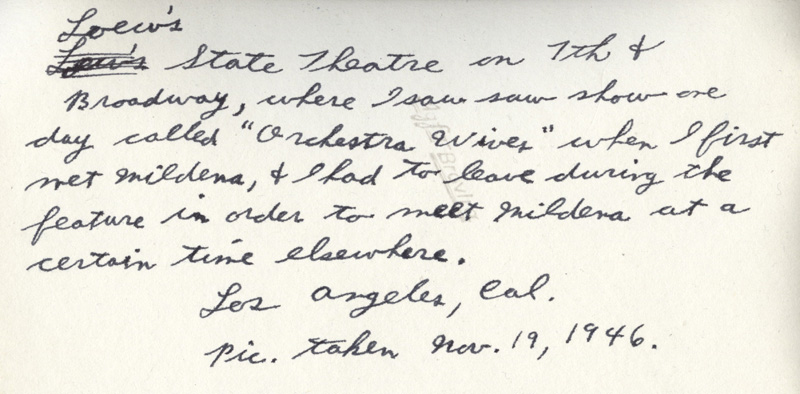 Loew's
Lew's State Theatre on 7th &
Broadway, where I saw saw show one
day called "Orchestra Wives" when I first
met Mildena, & I had to leave during the
feature in order to meet Mildena at a
certain time elsewhere.
Los Angeles, Cal.
Pic. taken Nov. 19, 1946.